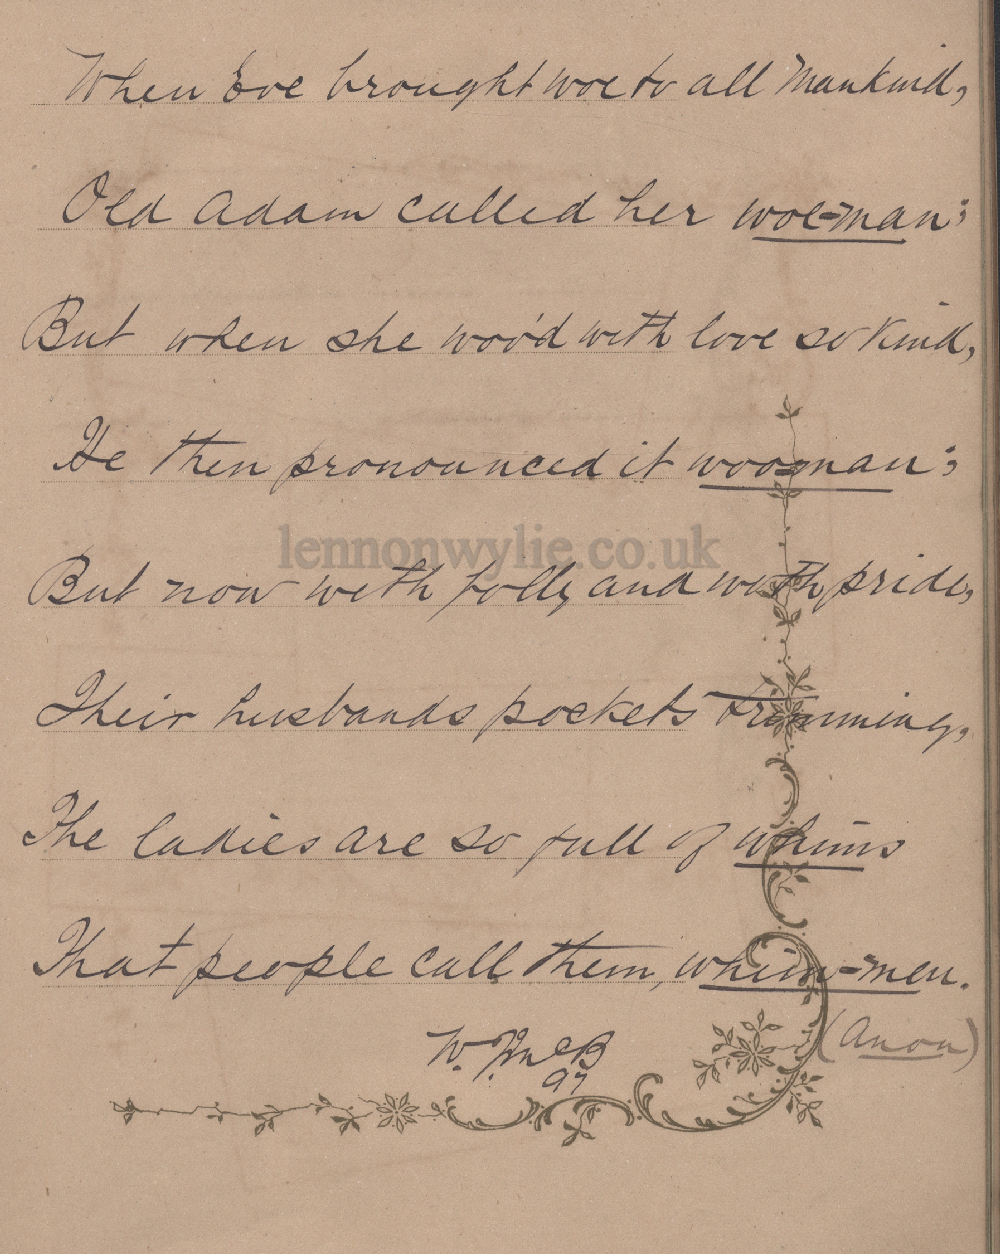 When Eve brought woe to all Mankind,
Old Adam called her woe-man;
But when she woo'd with love so Kind,
He then pronounced it woo-man;
lennonwylie.co.uk
But now with folly and with pride,
Their husbands pockets trimming,
The ladies are so full of whims
That people call them, whim-men.
W. McB
(Anon)
97